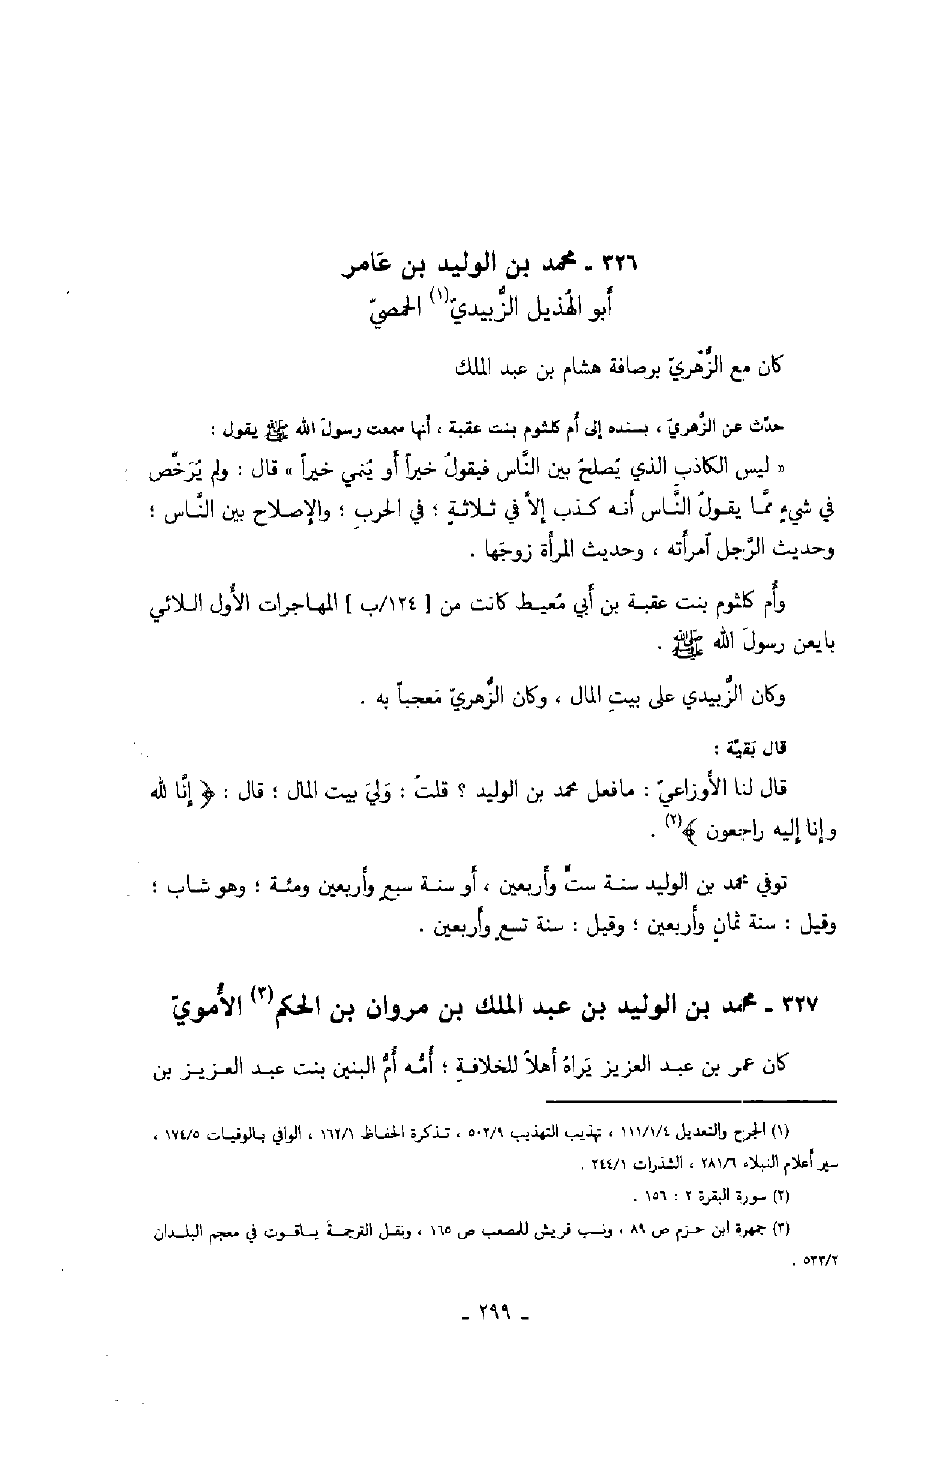 ٣٢٦ ـ محمد بن الوليد بن عَامر
أبو الهُذيل الزُّبيديّ(١) الحمصيّ
كان مع الزُّهْريّ برصافة هشام بن عبد الملك
حدّث عن الزُّهريّ ، بسنده إلى أم كلثوم بنت عقبة ، أنها سمعت رسولَ الله ﷺ يقول :
« ليس الكاذب الذي يُصلحُ بين النَّاس فيقولُ خيراً أو يُنمي خيراً » قال : ولم يُرَخّص
في شيءٍ ممَّا يقولُ النَّاس أنه كذب إلاَّ في ثلاثةٍ ؛ في الحرب ؛ والإصلاح بين النَّاس ؛
وحديث الرَّجل آمرأته ، وحديث المرأة زوجَها .
وأُم كلثوم بنت عقبة بن أبي مُعيط كانت من [ ١٢٤/ب ] المهاجرات الأُول اللائي
بايعن رسولَ الله ﷺ .
وكان الزُّبيدي على بيتِ المال ، وكان الزُّهريّ مُعجباً به .
قال بَقيَّة :
قال لنا الأوزاعيّ : مافعل محمد بن الوليد ؟ قلتُ : وَليَ بيت المال ؛ قال : ﴿ إنَّا لله
وإنا إليه راجعون ﴾(٢) .
توفي محمد بن الوليد سنة ستٍّ وأربعين ، أو سنة سبعٍ وأربعين ومئة ؛ وهو شاب ؛
وقيل : سنة ثمانٍ وأربعين ؛ وقيل : سنة تسعٍ وأربعين .
٣٢٧ ـ محمد بن الوليد بن عبد الملك بن مروان بن الحكم(٣) الأُمويّ
كان عمر بن عبد العزيز يَراهُ أهلاً للخلافةِ ؛ أُمُّه أمُّ البنين بنت عبد العزيز بن
(١) الجرح والتعديل ١١١/١/٤ ، تهذيب التهذيب ٥٠٢/٩ ، تذكرة الحفاظ ١٦٢/١ ، الوافي بالوفيات ١٧٤/٥ ،
سير أعلام النبلاء ٢٨١/٦ ، الشذرات ٢٤٤/١ .
(٢) سورة البقرة ٢ : ١٥٦ .
(٣) جمهرة ابن حزم ص ٨٩ ، ونسب قريش للمصعب ص ١٦٥ ، ونقل الترجمة ياقوت في معجم البلدان
٥٣٣/٢ .
ـ ٢٩٩ ـ